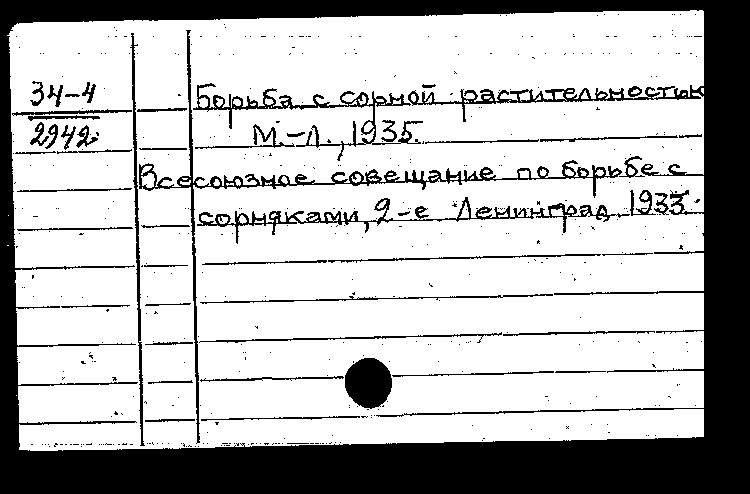 34-4
2942.
Борьба с сорной растительностью
М.-Л., 1935.
Всесоюзное совещание по борьбе с
сорняками, 2-е Ленинград. 1933.